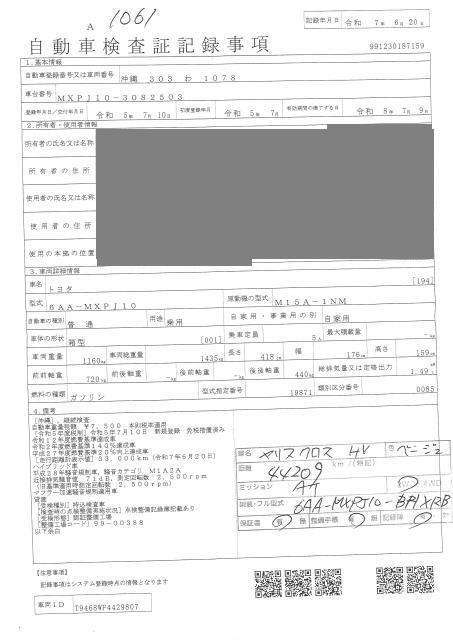 1061
A
記録年月日 令和 7年 6月 20日
自動車検査証記録事項 991230187159
1.基本情報
自動車登録番号又は車両番号 沖縄 303 わ 1078
車台番号 MXPJ10-3082503
登録年月日/交付年月日 令和 5年 7月 10日 初度登録年月 令和 5年 7月 有効期間の満了する日 令和 8年 7月 9日
2.所有者・使用者情報
所有者の氏名又は名称
所有者の住所
使用者の氏名又は名称
使用者の住所
使用の本拠の位置
3.車両詳細情報
車名 トヨタ [194]
型式 6AA-MXPJ10 原動機の型式 M15A-1NM
自動車の種別 普通 用途 乗用 自家用・事業用の別 自家用
車体の形状 箱型 [001] 乗車定員 5人 最大積載量 -kg
車両重量 1160kg 車両総重量 1435kg 長さ 418cm 幅 176cm 高さ 159cm
前前軸重 720kg 前後軸重 -kg 後前軸重 -kg 後後軸重 440kg 総排気量又は定格出力 1.49L
燃料の種類 ガソリン 型式指定番号 19871 類別区分番号 0085
4.備考
[沖縄], 継続検査
自動車重量税額 ¥7,500 本則税率適用
[令和5年度税制] 令和5年7月10日 新規登録 免税措置済み
令和12年度燃費基準達成車
令和2年度燃費基準140%達成車
平成27年度燃費基準20%向上達成車
[走行距離計表示値] 33,000km (令和7年6月20日)
ハイブリッド車
平成28年騒音規制車, 騒音カテゴリ M1A2A
近接排気騒音値 71dB, 測定回転数 2,500rpm
(旧基準適用時測定回転数 2,500rpm)
マフラー加速騒音規制適用車
貨渡
[受検種別] 持込検査車
[検査時の点検整備実施状況] 点検整備記録簿記載あり
[受検形態] 認証整備工場
[整備工場コード] 99-00388
以下余白
車名 ヤリスクロス HV 色 ベージュ
距離 44209 km / (特記)
ミッション AT 2WD 4WD
認定・フル型式 6AA-MXPJ10-BPXRB
保証書 有 無 整備手帳 有 無 記録簿 有
【注意事項】
記録事項はシステム登録時点の情報となります
車両ID T9468WF4429807